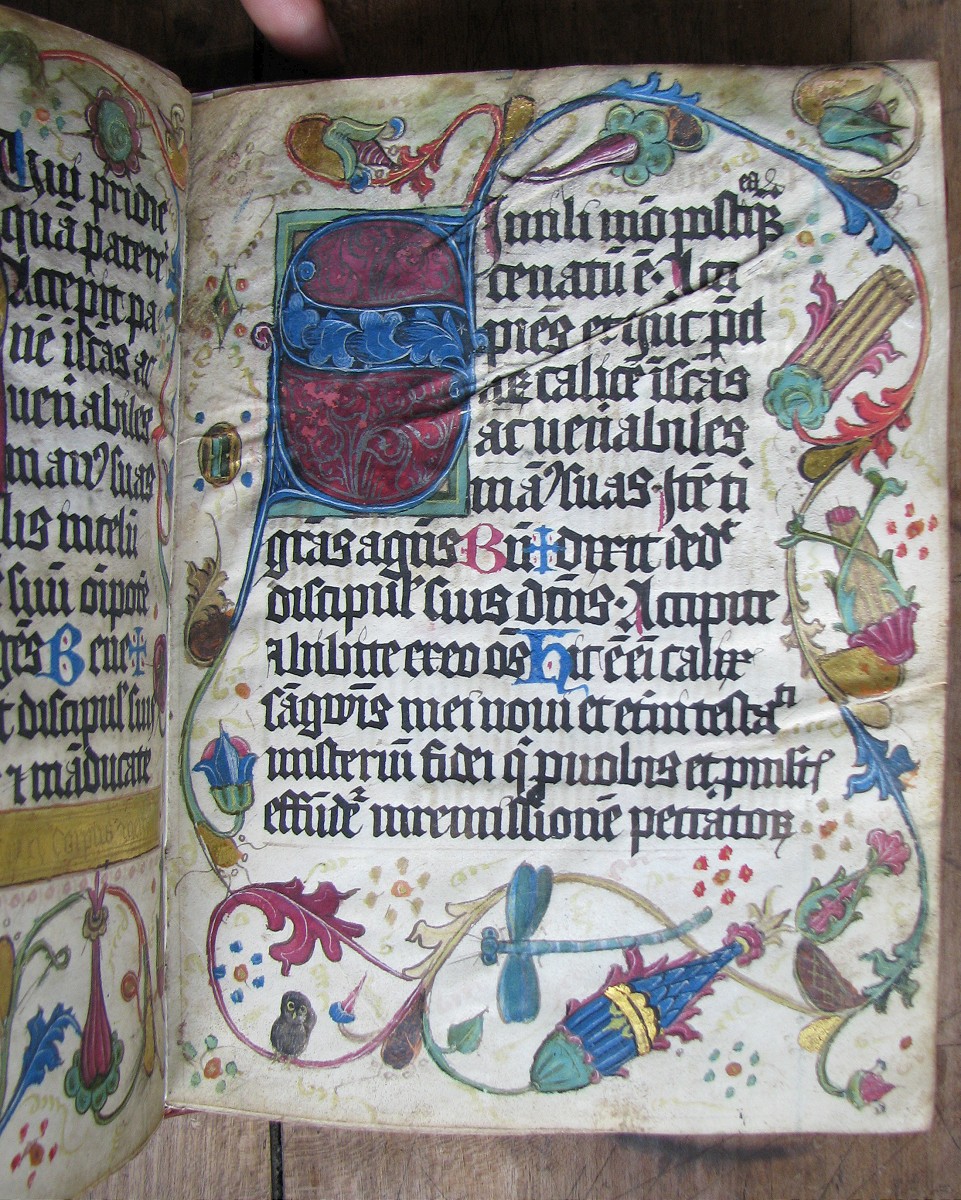 Qui pridie
quā pateret
Accepit pa
nē ī scās ac
uenabiles
man⁹ suas
lis in celū
suū oīpotē
gēs Bene✝
t discipul' suis
māducate
Simili mō postqꝫ
cenatū ē· Acci
piēs et hūc p̄cl
calicē ī scās
ac uenabiles
mā⁹ suas· Itē ti
grās agēs Bn̄✝dixit ded͛
discipul' suis dicēs· Accipite
bibite ex eo oēs Hic ē eī calix
sāgwīs mei noui et et̄ni testa
misteriū fidei q̄ p uobis et p mult
effūdet᷑ in remissionē peccatoꝝ